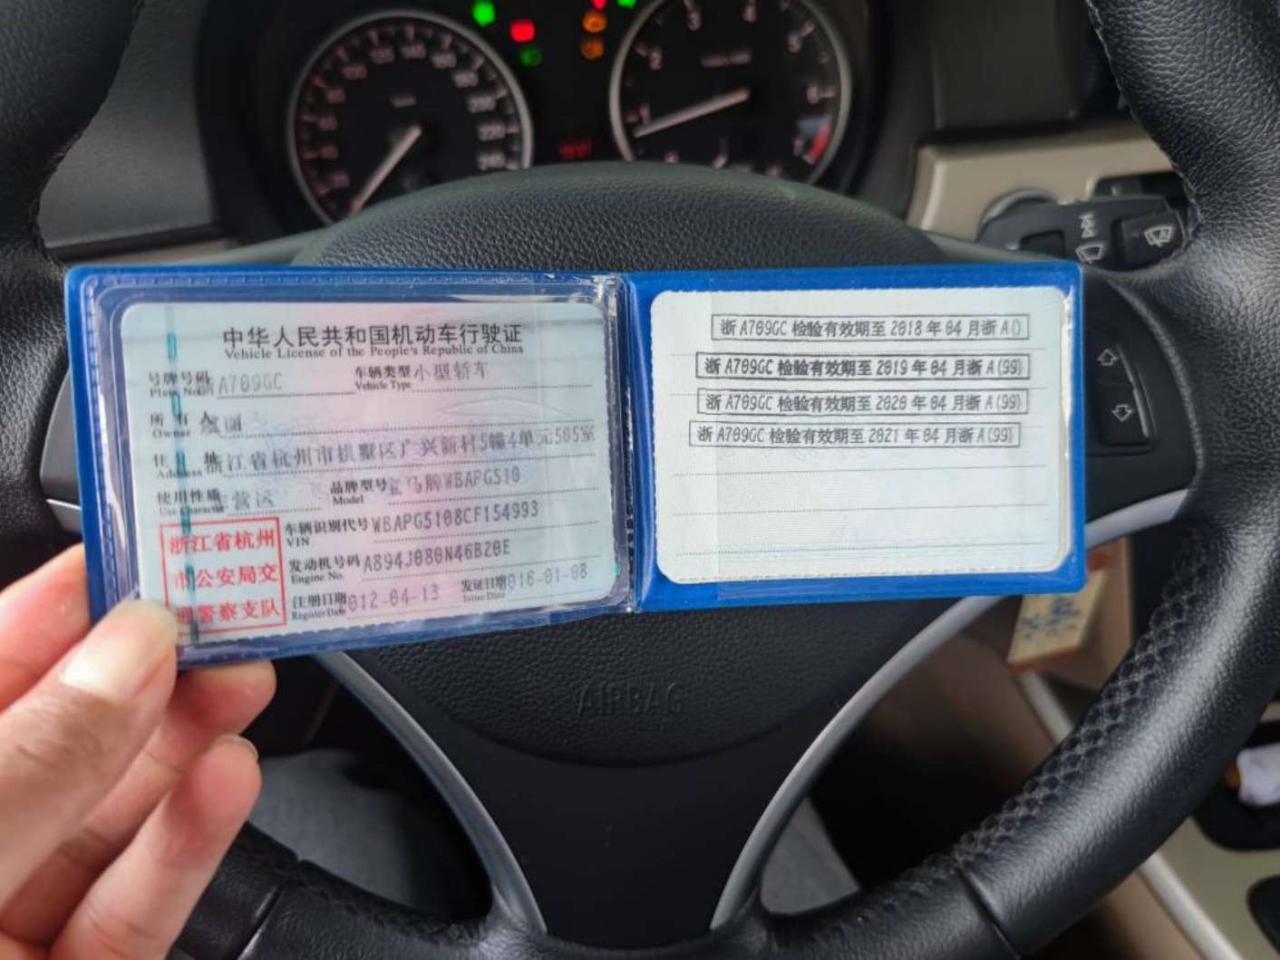 中华人民共和国机动车行驶证
Vehicle License of the People's Republic of China
号牌号码 A709GC 车辆类型 小型轿车
Plate No. Vehicle Type
所有人
Owner
住址 浙江省杭州市拱墅区广兴新村5幢4单元505室
Address
使用性质 营运 品牌型号 宝马牌WBAPG510
Use Character Model
浙江省杭州
市公安局交
通警察支队
车辆识别代号 WBAPG5108CF154993
VIN
发动机号码 A894J080N46B20E
Engine No.
注册日期 012-04-13 发证日期 016-01-08
Register Date Issue Date
浙A709GC 检验有效期至 2018 年 04 月浙 A()
浙A709GC 检验有效期至 2019 年 04 月浙 A(99)
浙A709GC 检验有效期至 2020 年 04 月浙 A(99)
浙A709GC 检验有效期至 2021 年 04 月浙 A(99)
AIRBAG